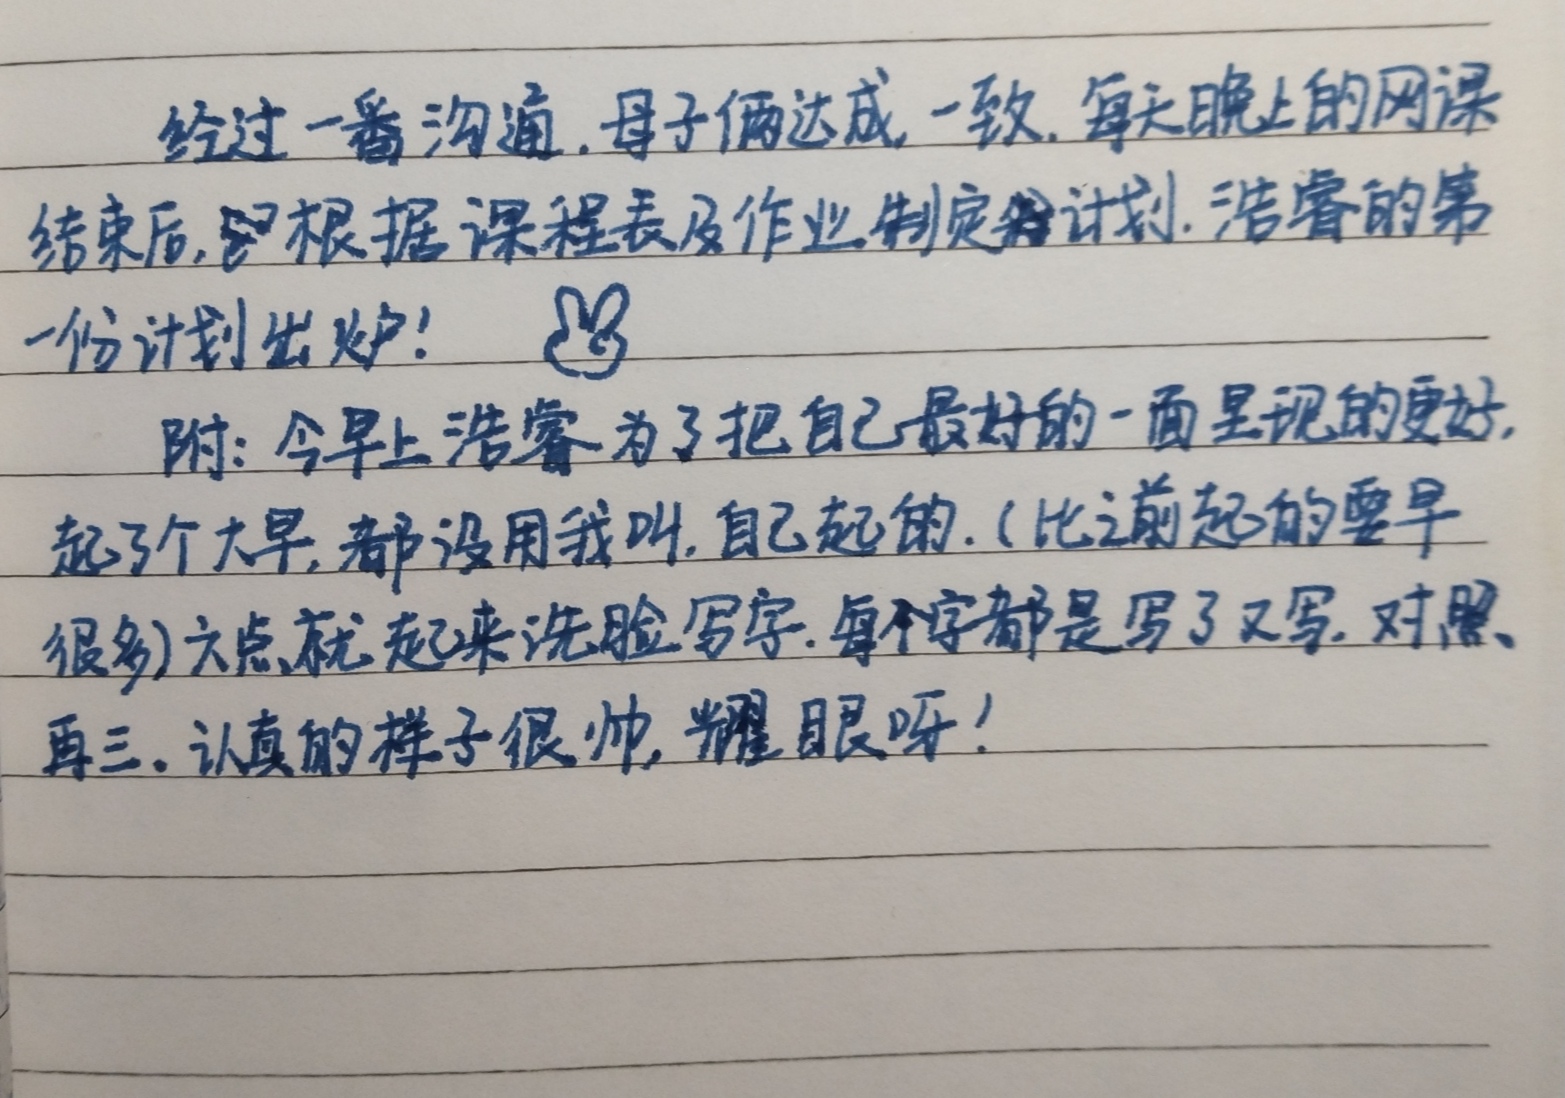 经过一番沟通,母子俩达成一致,每天晚上的网课
结束后,根据课程表及作业制定计划.浩睿的第
一份计划出炉!
附:今早上浩睿为了把自己最好的一面呈现的更好,
起了个大早,都没用我叫,自己起的.(比之前起的要早
很多)六点就起来洗脸写字.每个字都是写了又写.对照、
再三、认真的样子很帅,耀眼呀!